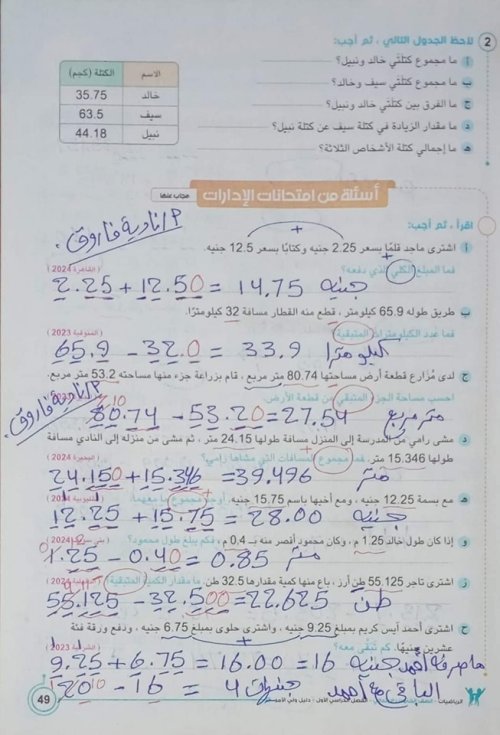 2 لاحظ الجدول التالي ، ثم أجب:
أ ما مجموع كتلتي خالد ونبيل؟
ب ما مجموع كتلتي سيف وخالد؟
ج ما الفرق بين كتلتي خالد ونبيل؟
د ما مقدار الزيادة في كتلة سيف عن كتلة نبيل؟
هـ ما إجمالي كتلة الأشخاص الثلاثة؟
الاسم الكتلة (كجم)
خالد 35.75
سيف 63.5
نبيل 44.18
أسئلة من امتحانات الإدارات مجاب عنها
اقرأ ، ثم أجب:
م/نادية فاروق.
أ اشترى ماجد قلمًا بسعر 2.25 جنيه وكتابًا بسعر 12.5 جنيه.
فما المبلغ الكلي الذي دفعه؟ (القاهرة 2024)
2.25 + 12.50 = 14.75 جنيه
ب طريق طوله 65.9 كيلومتر ، قطع منه القطار مسافة 32 كيلومترًا.
فما عدد الكيلومترات المتبقية؟ (المنوفية 2023)
65.9 - 32.0 = 33.9 كيلومترا
ج لدى مُزارع قطعة أرض مساحتها 80.74 متر مربع، قام بزراعة جزء منها مساحته 53.2 متر مربع.
احسب مساحة الجزء المتبقي من قطعة الأرض.
م/نادية فاروق.
80.74 - 53.20 = 27.54 متر مربع
د مشى رامي من المدرسة إلى المنزل مسافة طولها 24.15 متر ، ثم مشى من منزله إلى النادي مسافة
طولها 15.346 متر. فما مجموع المسافات التي مشاها رامي؟ (البحيرة 2024)
24.150 + 15.346 = 39.496 متر
هـ مع بسمة 12.25 جنيه ، ومع أخيها باسم 15.75 جنيه. أوجد مجموع ما معهما. (القليوبية 2024)
12.25 + 15.75 = 28.00 جنيه
و إذا كان طول خالد 1.25 م ، وكان محمود أقصر منه بـ 0.4 م ، فكم يبلغ طول محمود؟
1.25 - 0.40 = 0.85 متر
ز اشترى تاجر 55.125 طن أرز ، باع منها كمية مقدارها 32.5 طن. ما مقدار الكمية المتبقية؟
55.125 - 32.500 = 22.625 طن
ح اشترى أحمد آيس كريم بمبلغ 9.25 جنيه ، واشترى حلوى بمبلغ 6.75 جنيه ، ودفع ورقة فئة
عشرين جنيهًا. كم تبقى معه؟
9.25 + 6.75 = 16.00 = 16 جنيه ما صرفه أحمد
20 - 16 = 4 جنيهات الباقي مع أحمد
49